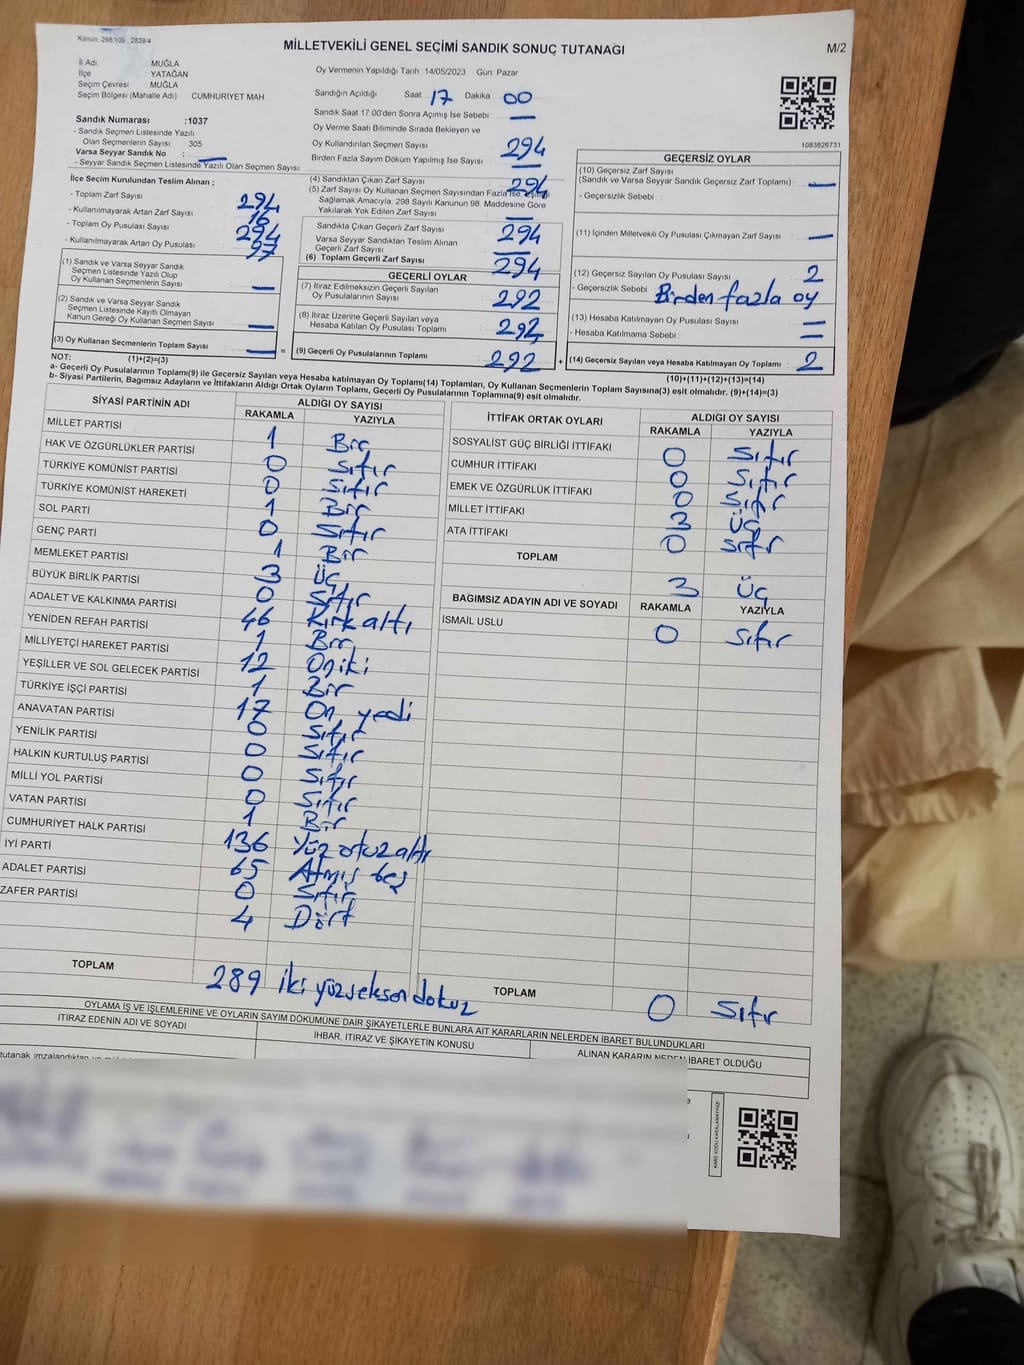 Kanun: 298/105 , 2839/4
MİLLETVEKİLİ GENEL SEÇİMİ SANDIK SONUÇ TUTANAĞI
M/2
İl Adı : MUĞLA
İlçe : YATAĞAN
Seçim Çevresi : MUĞLA
Seçim Bölgesi (Mahalle Adı) : CUMHURİYET MAH.
Oy Vermenin Yapıldığı Tarih :14/05/2023 Gün: Pazar
Sandığın Açıldığı Saat 17 Dakika 00
Sandık Saat 17:00'den Sonra Açılmış İse Sebebi : —
Sandık Numarası :1037
- Sandık Seçmen Listesinde Yazılı
Olan Seçmenlerin Sayısı 305
Varsa Seyyar Sandık No : —
- Seyyar Sandık Seçmen Listesinde Yazılı Olan Seçmen Sayısı:
Oy Verme Saati Bitiminde Sırada Bekleyen ve
Oy Kullandırılan Seçmen Sayısı 294
Birden Fazla Sayım Döküm Yapılmış İse Sayısı : —
1083826731
İlçe Seçim Kurulundan Teslim Alınan ;
- Toplam Zarf Sayısı 294
- Kullanılmayarak Artan Zarf Sayısı 16
- Toplam Oy Pusulası Sayısı 294
- Kullanılmayarak Artan Oy Pusulası 97
(1) Sandık ve Varsa Seyyar Sandık
Seçmen Listesinde Yazılı Olup
Oy Kullanan Seçmenlerin Sayısı —
(2) Sandık ve Varsa Seyyar Sandık
Seçmen Listesinde Kayıtlı Olmayan
Kanun Gereği Oy Kullanan Seçmen Sayısı —
(3) Oy Kullanan Seçmenlerin Toplam Sayısı —
(4) Sandıktan Çıkan Zarf Sayısı 294
(5) Zarf Sayısı Oy Kullanan Seçmen Sayısından Fazla İse, Eşitliği
Sağlamak Amacıyla, 298 Sayılı Kanunun 98. Maddesine Göre
Yakılarak Yok Edilen Zarf Sayısı —
Sandıkta Çıkan Geçerli Zarf Sayısı 294
Varsa Seyyar Sandıktan Teslim Alınan
Geçerli Zarf Sayısı —
(6) Toplam Geçerli Zarf Sayısı 294
GEÇERLİ OYLAR
(7) İtiraz Edilmeksizin Geçerli Sayılan
Oy Pusulalarının Sayısı 292
(8) İtiraz Üzerine Geçerli Sayılan veya
Hesaba Katılan Oy Pusulası Toplamı 292
= (9) Geçerli Oy Pusulalarının Toplamı 292 +
GEÇERSİZ OYLAR
(10) Geçersiz Zarf Sayısı
(Sandık ve Varsa Seyyar Sandık Geçersiz Zarf Toplamı) : —
- Geçersizlik Sebebi :
(11) İçinden Milletvekili Oy Pusulası Çıkmayan Zarf Sayısı : —
(12) Geçersiz Sayılan Oy Pusulası Sayısı : 2
- Geçersizlik Sebebi : Birden fazla oy
(13) Hesaba Katılmayan Oy Pusulası Sayısı : —
- Hesaba Katılmama Sebebi : —
(14) Geçersiz Sayılan veya Hesaba Katılmayan Oy Toplamı : 2
NOT: (1)+(2)=(3)
(10)+(11)+(12)+(13)=(14)
a- Geçerli Oy Pusulalarının Toplamı(9) ile Geçersiz Sayılan veya Hesaba katılmayan Oy Toplamı(14) Toplamları, Oy Kullanan Seçmenlerin Toplam Sayısına(3) eşit olmalıdır. (9)+(14)=(3)
b- Siyasi Partilerin, Bağımsız Adayların ve İttifakların Aldığı Ortak Oyların Toplamı, Geçerli Oy Pusulalarının Toplamına(9) eşit olmalıdır.
SİYASİ PARTİNİN ADI ALDIĞI OY SAYISI
RAKAMLA YAZIYLA
MİLLET PARTİSİ 1 Bir
HAK VE ÖZGÜRLÜKLER PARTİSİ 0 Sıfır
TÜRKİYE KOMÜNİST PARTİSİ 0 Sıfır
TÜRKİYE KOMÜNİST HAREKETİ 1 Bir
SOL PARTİ 0 Sıfır
GENÇ PARTİ 1 Bir
MEMLEKET PARTİSİ 3 Üç
BÜYÜK BİRLİK PARTİSİ 0 Sıfır
ADALET VE KALKINMA PARTİSİ 46 Kırkaltı
YENİDEN REFAH PARTİSİ 1 Bir
MİLLİYETÇİ HAREKET PARTİSİ 12 Oniki
YEŞİLLER VE SOL GELECEK PARTİSİ 1 Bir
TÜRKİYE İŞÇİ PARTİSİ 17 On yedi
ANAVATAN PARTİSİ 0 Sıfır
YENİLİK PARTİSİ 0 Sıfır
HALKIN KURTULUŞ PARTİSİ 0 Sıfır
MİLLİ YOL PARTİSİ 0 Sıfır
VATAN PARTİSİ 1 Bir
CUMHURİYET HALK PARTİSİ 136 Yüz otuz altı
İYİ PARTİ 65 Atmış beş
ADALET PARTİSİ 0 Sıfır
ZAFER PARTİSİ 4 Dört
TOPLAM 289 iki yüzseksen dokuz
İTTİFAK ORTAK OYLARI ALDIĞI OY SAYISI
RAKAMLA YAZIYLA
SOSYALİST GÜÇ BİRLİĞİ İTTİFAKI 0 Sıfır
CUMHUR İTTİFAKI 0 Sıfır
EMEK VE ÖZGÜRLÜK İTTİFAKI 0 Sıfır
MİLLET İTTİFAKI 3 Üç
ATA İTTİFAKI 0 Sıfır
TOPLAM 3 Üç
BAĞIMSIZ ADAYIN ADI VE SOYADI RAKAMLA YAZIYLA
İSMAİL USLU 0 Sıfır
TOPLAM 0 Sıfır
OYLAMA İŞ VE İŞLEMLERİNE VE OYLARIN SAYIM DÖKÜMÜNE DAİR ŞİKAYETLERLE BUNLARA AİT KARARLARIN NELERDEN İBARET BULUNDUKLARI
İTİRAZ EDENİN ADI VE SOYADI
İHBAR, İTİRAZ VE ŞİKAYETİN KONUSU
ALINAN KARARIN NEDEN İBARET OLDUĞU